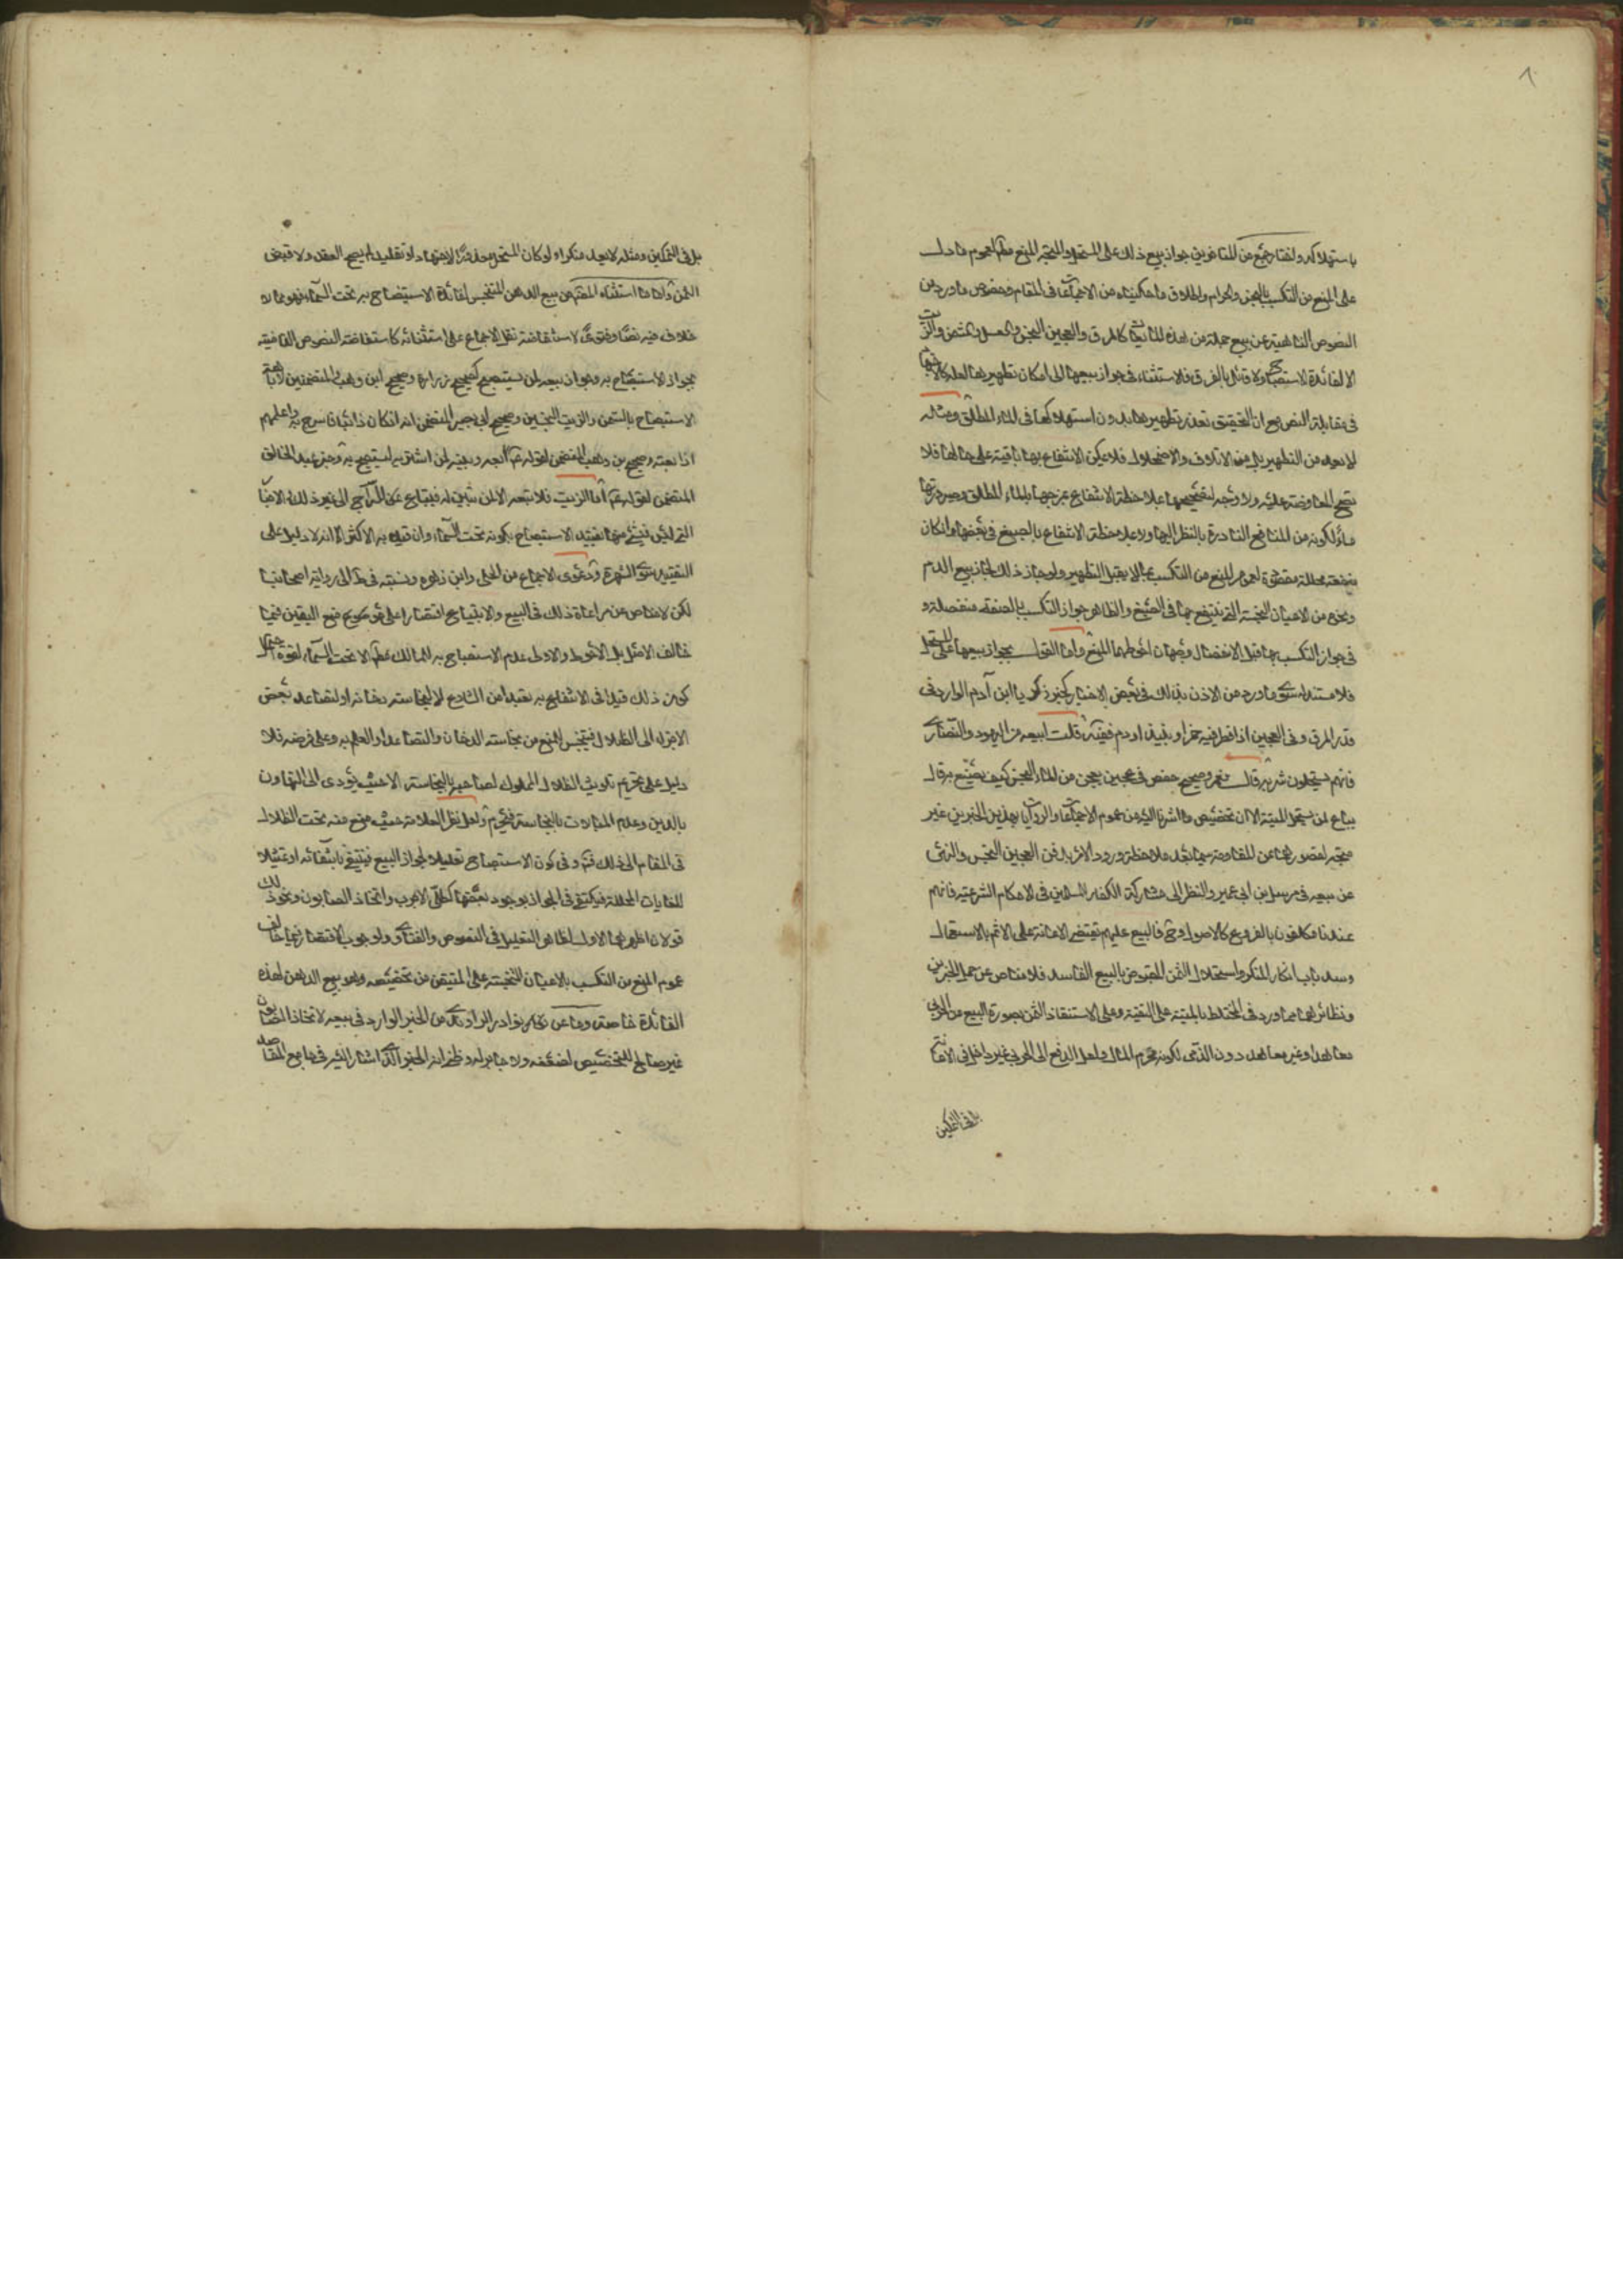 باستهلاكه واختار جمع من المتاخرين جواز بيع ذلك على المستحل والمتجه المنع مطلقا لعموم ما دل
على المنع من التكسب بالنجس والحرام واطلاق ما حكيناه من الاجماعات في المقام وخصوص ما ورد من
النصوص الناهية عن بيع جملة من هذه المايعات كالمرق والعجين النجس والعسل والسمن والزيت
الا لفائدة الاستصباح ولا قائل بالفرق فلا استثناء في جواز بيعها الى امكان تطهيرها
في مقابلة النص مع ان التحقيق تعذر تطهيرها بدون استهلاكها في الماء المطلق ومثله
لا يعد من التطهير بل من الاتلاف والاضمحلال فلا يمكن الانتفاع بها باقية على حالها فلا
تصح المعاوضة عليه ولا وجه لتصحيحها بملاحظة الانتفاع بمزجها بالماء المطلق وصيرورتها
ماء لكونه من المنافع النادرة بالنظر اليها ولا بملاحظة الانتفاع بالصبغ في بعضها وان كان
منفعة محللة مقصودة لعموم المنع من التكسب بما لا يقبل التطهير ولو جاز ذلك لجاز بيع الدم
ونحوه من الاعيان النجسة التي ينتفع بها في الصبغ والظاهر جواز التكسب بالصبغة منفصلة و
في جواز التكسب بها قبل الانفصال وجهان احوطهما المنع واما القول بجواز بيعها على المستحل
فلا مستند له سوى ما ورد من الاذن بذلك في بعض الاخبار كخبر زكريا ابن آدم الوارد في
قدر المرق وفي العجين اذا قطر فيه خمر او نبيذ او دم فقيه قلت ابيعه من اليهود والنصارى
فانهم يستحلون شربه قال نعم وصحيح حفص في عجين عجن من الماء النجس كيف يصنع به قال
يباع لمن يستحل الميتة الا ان تخصيص ما اشرنا اليه من عموم الاجماعات والروايات بهذين الخبرين غير
متجه لقصورهما عن المقاومة سيما بعد ملاحظة ورود الامر بدفن العجين النجس والنهي
عن بيعه في مرسل ابن ابي عمير والنظر الى مشاركة الكفار للمسلمين في الاحكام الشرعية فانهم
عندنا مكلفون بالفروع كالاصول وح فالبيع عليهم يقتضي الاعانة على الاثم بالاستعمال
وسد باب انكار المنكر واستحلال الثمن المقبوض بالبيع الفاسد فلا مناص عن حمل الخبرين
ونظائرهما مما ورد في المختلط بالميتة على التقية وعلى الاستنقاذ الثمن بصورة البيع من الحربي
معاهدا وغير معاهد دون الذمي لكونه محترم المال ولعل الدفع الى الحربي غير داخل في الاعانة
بل في التمكين
بل في التمكين ومثله لا يعد منكرا ولو كان المستحل معذورا لاجتهاد او تقليد لم يصح العقد ولا قبض
الثمن واما ما استثناه المصنف من بيع الدهن المتنجس لفائدة الاستصباح به تحت السماء فهو مما لا
خلاف فيه نصا وفتوى لاستفاضة نقل الاجماع على استثنائه كاستفاضة النصوص القاضية
بجواز الاستصباح به وجواز بيعه لمن يستصبح كصحيح زرارة وصحيح ابن وهب المتضمنين لاباحة
الاستصباح بالسمن والزيت النجسين وصحيح ابي بصير المتضمن انه ان كان ذائبا فاسرج به واعلمهم
اذا بعته وصحيح بن وهب المتضمن لقوله ع بعه وبينه لمن اشتراه ليستصبح به وخبر عبد الخالق
المتضمن لقوله ع اما الزيت فلا تبعه الا لمن تبين له فيبتاع للسراج الى غير ذلك من الاخبار
التي ليس في شيء منها تقييد الاستصباح بكونه تحت السماء وان قيده به الاكثر الا انه لا دليل على
التقييد سوى الشهرة ودعوى الاجماع من الحلي وابن زهره ونسبته في ط الى رواية اصحابنا
لكن لا مناص عن مراعاة ذلك في البيع والابتياع اقتصارا على موضع اليقين فيما
خالف الاصل بل الاحوط والاولى عدم الاستصباح به للمالك مطلقا الا تحت السماء لقوة احتمال
كون ذلك قيدا في الانتفاع به تعبدا من الشارع لا لنجاسة دخانه او لتصاعد بعض
الاجزاء الى الظلال فينجس لمنع من نجاسة الدخان والتصاعد او العلم به وعلى فرضه فلا
دليل على تحريم تلويث الظلال المملوك لصاحبه بالنجاسة الا حيث يؤدى الى التهاون
بالدين وعدم المبالات بالنجاسة فيحرم ولعل نظر العلامة حيث منع منه تحت الظلال
في المقام الى ذلك وفي كون الاستصباح تعليلا لجواز البيع فينتفي بانتفائه او تمثيلا
للغايات المحللة فيكتفي في الجواز بوجود بعضها كطلي الاجرب واتخاذ الصابون ونحو ذلك
قولان اظهرهما الاول لظاهر التعليل في النصوص والفتاوى ولوجوب الاقتصار فيما خالف
عموم المنع من التكسب بالاعيان النجسة على المتيقن من تخصيصه وهو بيع الدهن لهذه
الفائدة خاصة وما عن نوادر الراوندى من الخبر الوارد في بيعه لاتخاذ الصابون
غير صالح للتخصيص لضعفه ولا جابر له وظني انه الخبر الذي اشار اليه في جامع المقاصد